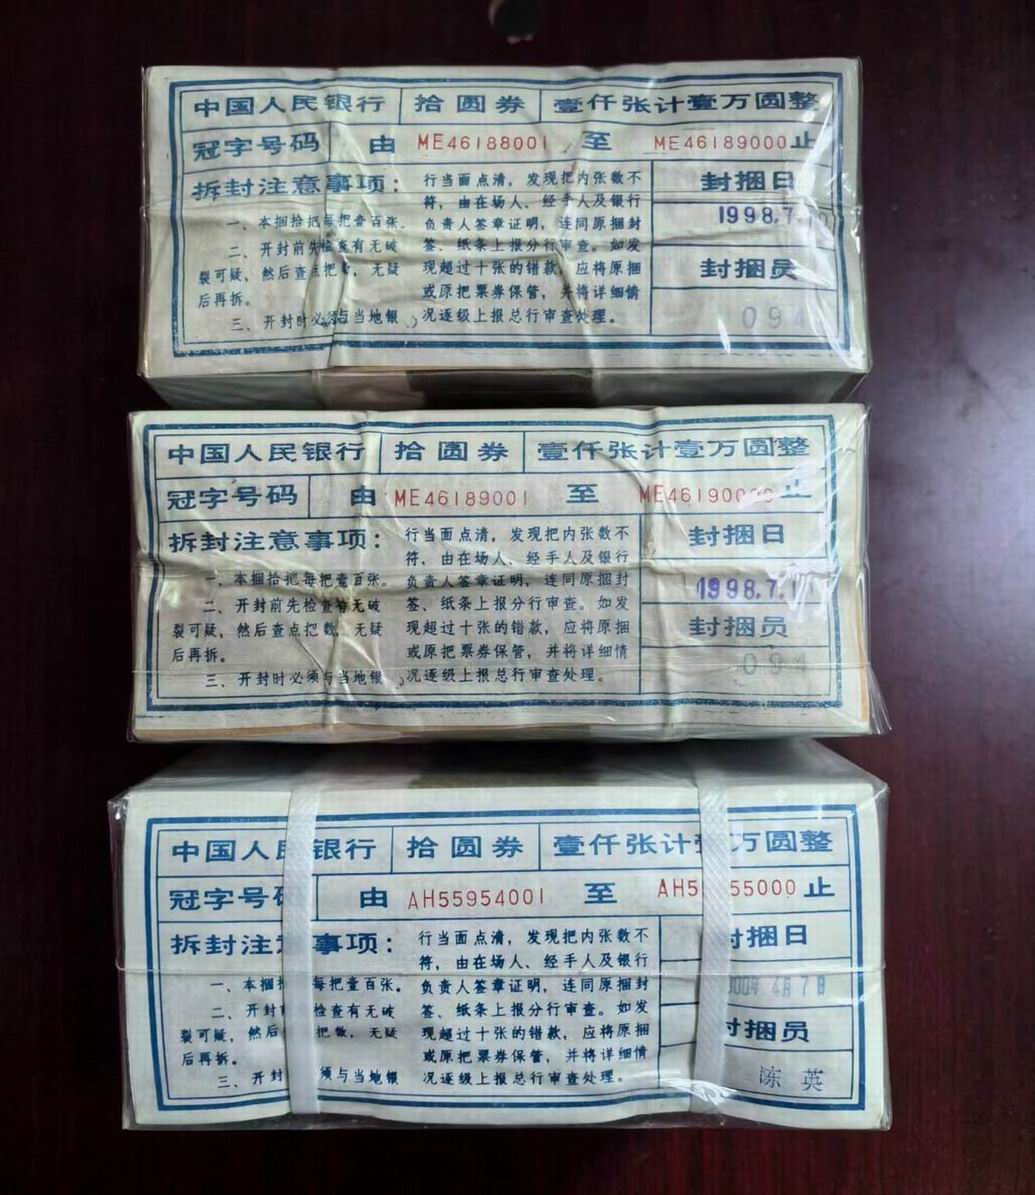 中国人民银行 拾圆券 壹仟张计壹万圆整
冠字号码 由 ME46188001 至 ME46189000 止
拆封注意事项：
一、本捆拾把每把壹百张。
二、开封前先检查有无破
裂可疑，然后查点把数，无疑
后再拆。
三、开封时必须与当地银
行当面点清，发现把内张数不
符，由在场人、经手人及银行
负责人签章证明，连同原捆封
签、纸条上报分行审查。如发
现超过十张的错款，应将原捆
或原把票券保管，并将详细情
况逐级上报总行审查处理。
封捆日
1998.7.
封捆员
094
中国人民银行 拾圆券 壹仟张计壹万圆整
冠字号码 由 ME46189001 至 ME46190000 止
拆封注意事项：
一、本捆拾把每把壹百张。
二、开封前先检查有无破
裂可疑，然后查点把数，无疑
后再拆。
三、开封时必须与当地银
行当面点清，发现把内张数不
符，由在场人、经手人及银行
负责人签章证明，连同原捆封
签、纸条上报分行审查。如发
现超过十张的错款，应将原捆
或原把票券保管，并将详细情
况逐级上报总行审查处理。
封捆日
1998.7.
封捆员
094
中国人民银行 拾圆券 壹仟张计 万圆整
冠字号码 由 AH55954001 至 AH5 55000 止
拆封注 事项：
一、本捆 每把壹百张。
二、开封 检查有无破
裂可疑，然后 把数，无疑
后再拆。
三、开封 须与当地银
行当面点清，发现把内张数不
符，由在场人、经手人及银行
负责人签章证明，连同原捆封
签、纸条上报分行审查。如发
现超过十张的错款，应将原捆
或原把票券保管，并将详细情
况逐级上报总行审查处理。
封捆日
004 4月7日
封捆员
陈英